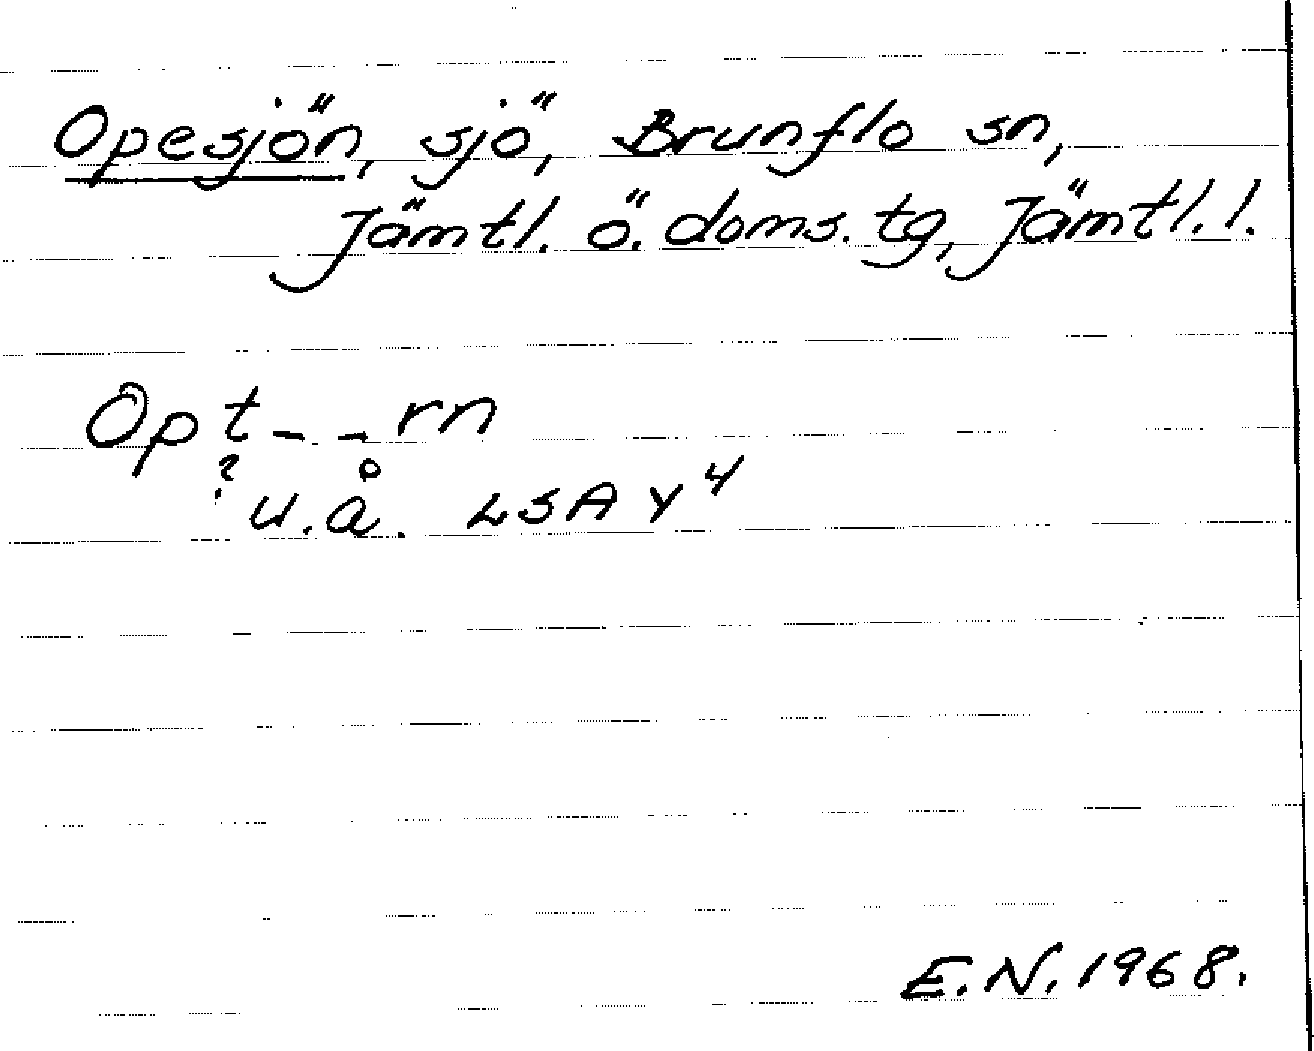 Opesjön, sjö, Brunflo sn,
Jämtl. ö. doms. tg, Jämtl. l.
Opt - - rn
? u.å. LSA Y4
E.N. 1968.